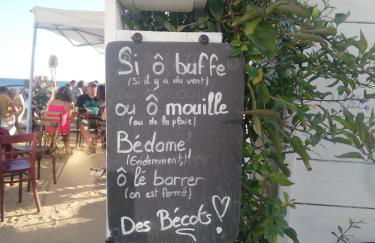 Si ô buffe
(si il y a du vent)
ou Ô mouille
(ou de la pluie)
Bédame,
(Evidemment!)
Ô lé barrer
(on est fermé)
Des Bécots!